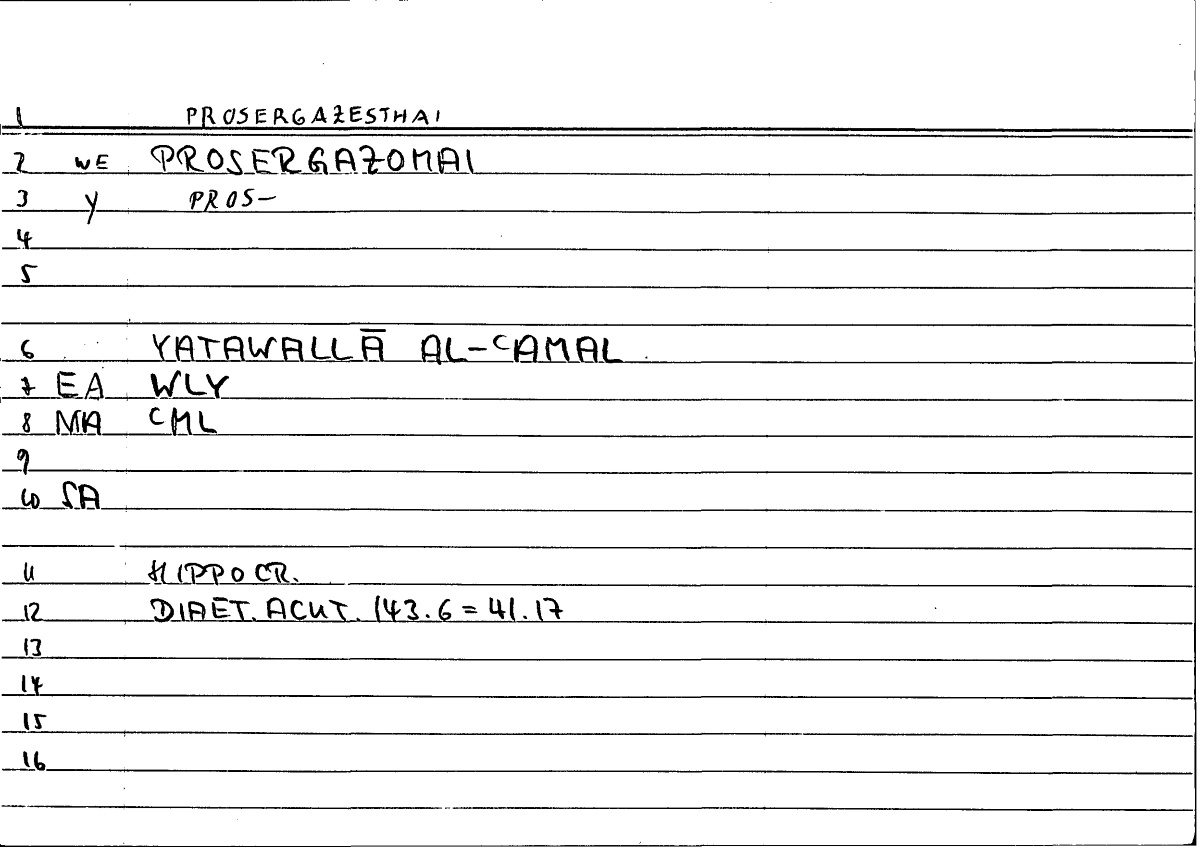 1 PROSERGAZESTHAI
2 WE PROSERGAZOMAI
3 Y PROS-
4
5
6 YATAWALLĀ AL-ʿAMAL
7 EA WLY
8 MA ʿML
9
10 SA
11 HIPPOCR.
12 DIAET. ACUT. 143.6 = 41.17
13
14
15
16